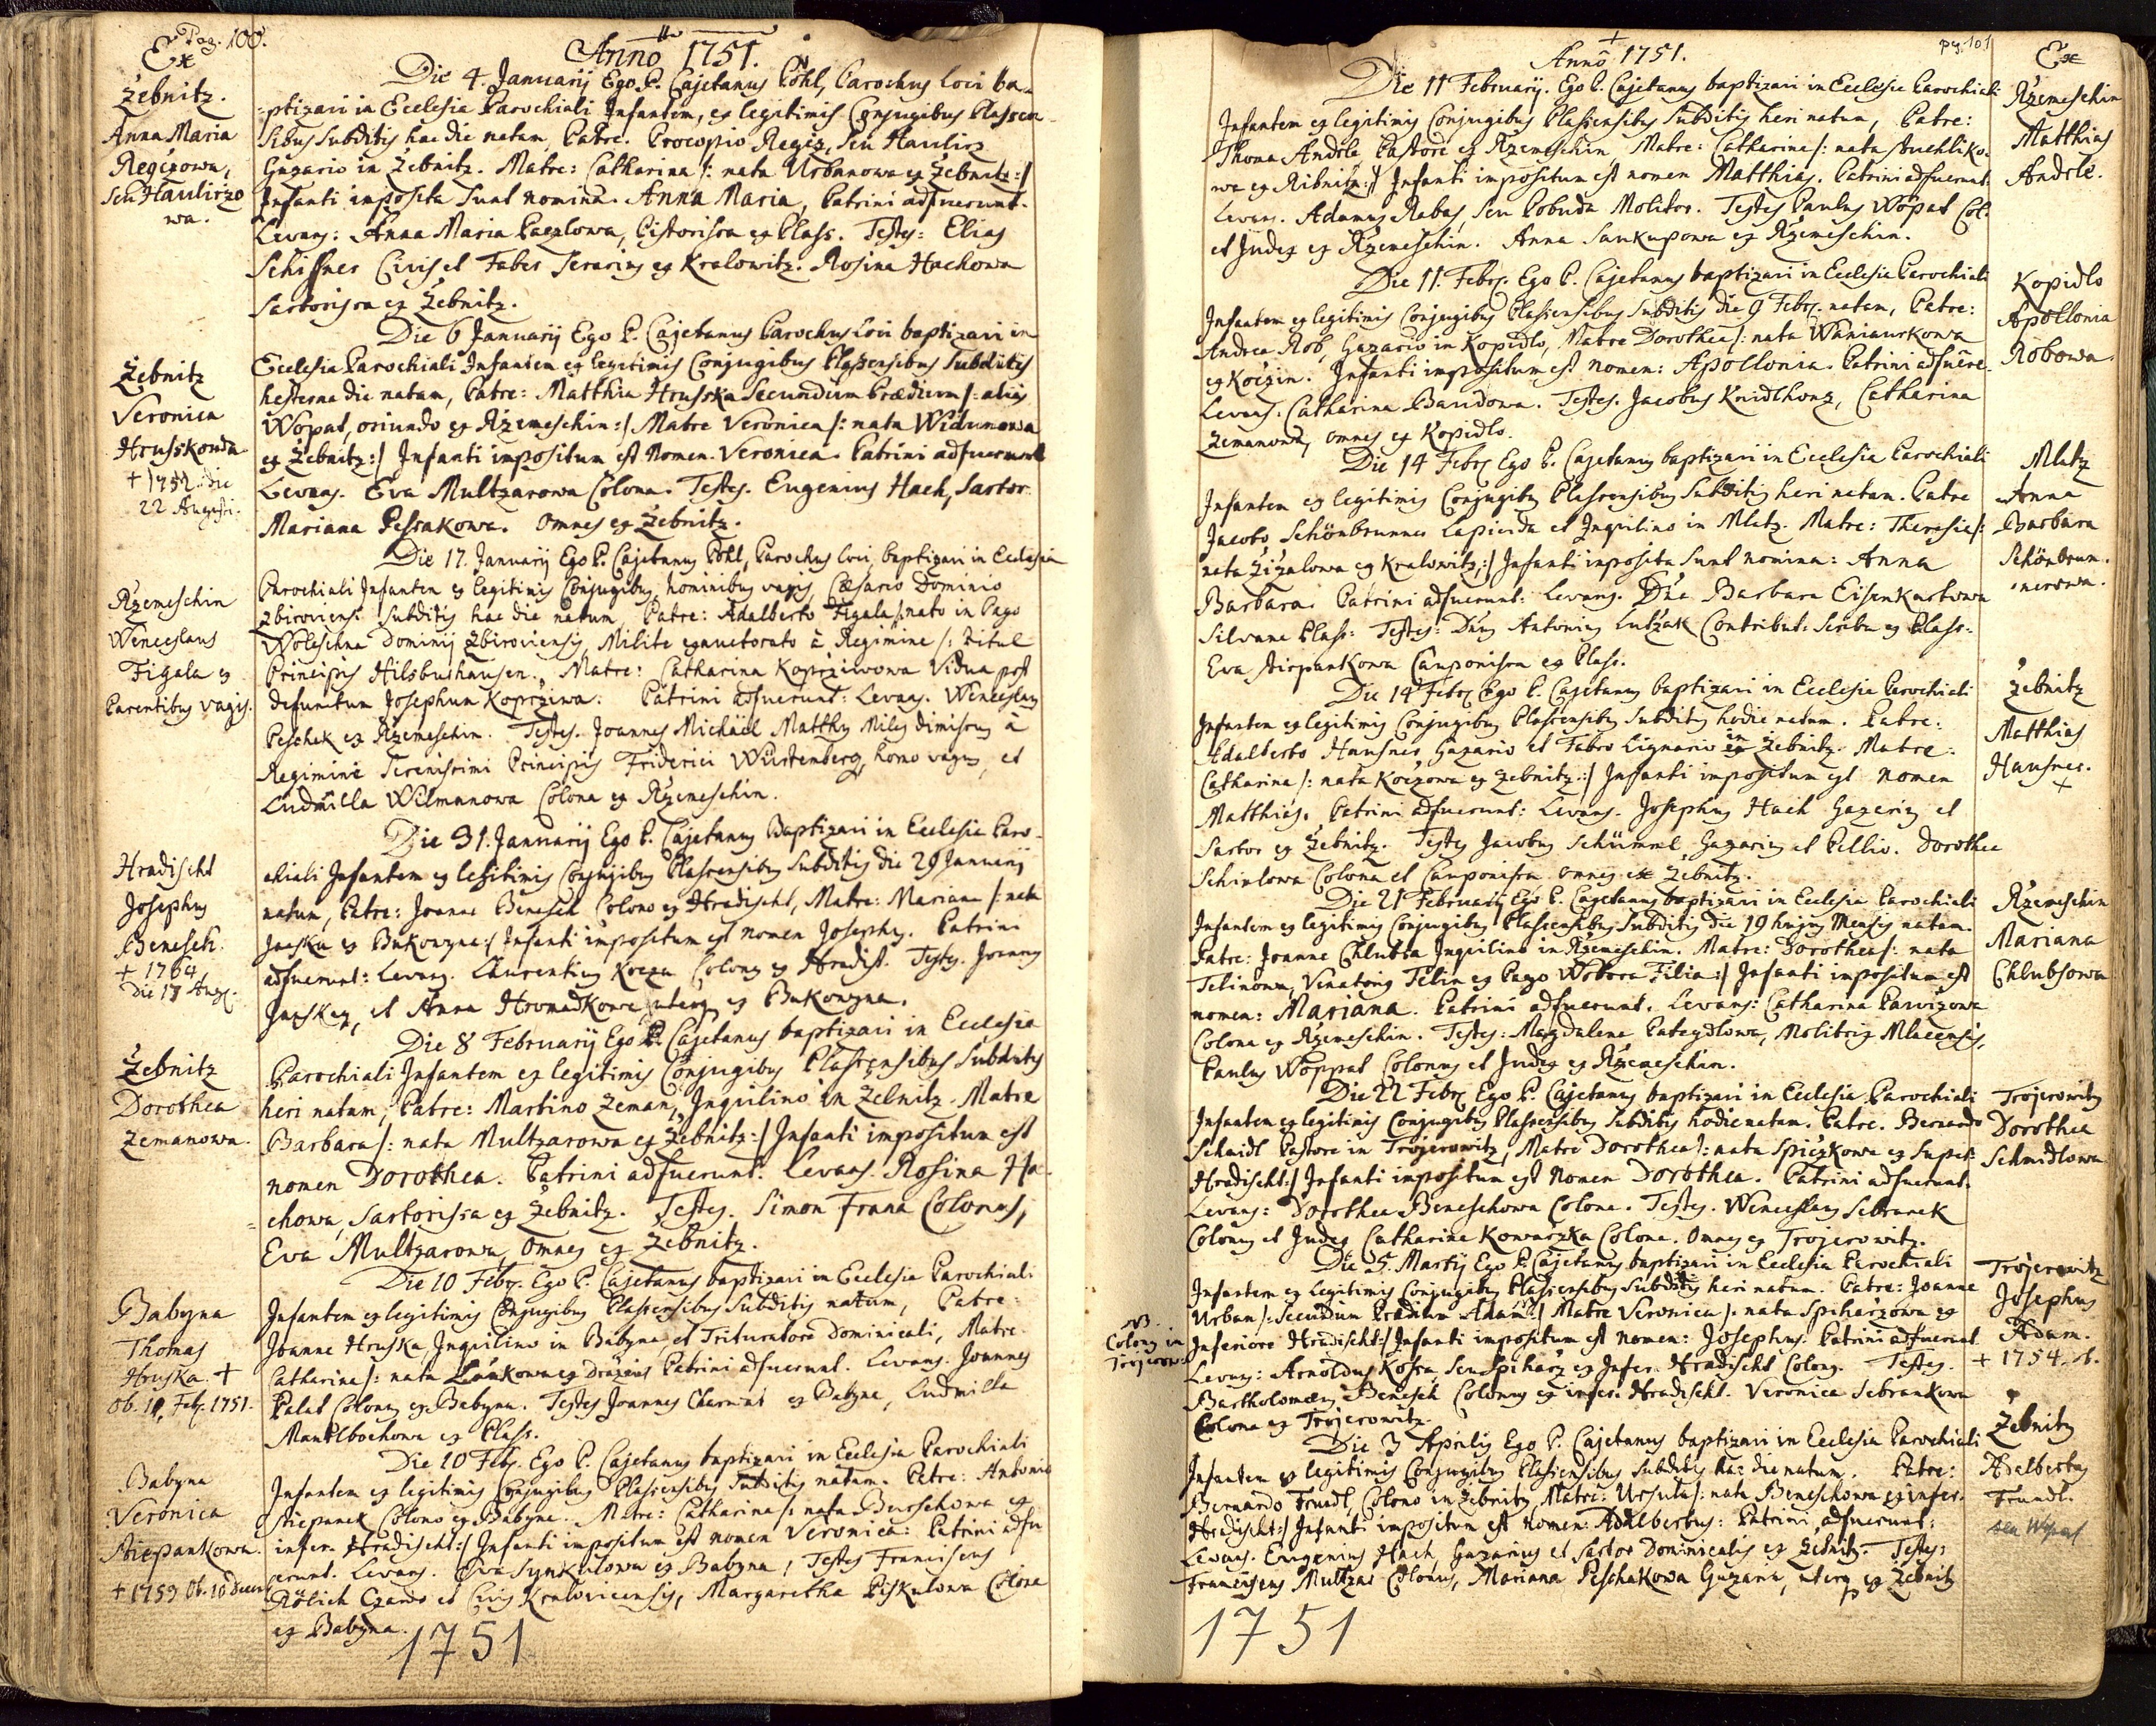 Pag. 100.
Ex
Žebnitz.
Anna Maria
Regczowa,
seu Haulirzo
wa.
Anno 1751.
Die 4. Januarij Ego P. Cajetanus Pöhl, Parochus loci ba-
-ptizavi in Ecclesia Parochiali Infantem, ex legitimis Conjugibus Plassen-
sibus Subditis hac die natam, Patre. Procopio Regcz, seu Haulirz
Gazario in Žebnitz. Matre: Catharina /: nata Urbanowa ex Žebnitz:/
Infanti imposita sunt nomina. Anna Maria, Patrini adfuerunt.
Levans: Anna Maria Paczlowa, Pistorissa ex Plass. Testes: Elias
Schiffner Civis et Faber serarius ex Kralowitz. Rosina Hachowa
Sartorissa ex Žebnitz.
Žebnitz
Veronica
Hrusskowa
+ 1752. die
22 Augusti.
Die 6 Januarij Ego P. Cajetanus Parochus loci baptizavi in
Ecclesia Parochiali Infantem ex legitimis Conjugibus Plassensibus Subditis
hesterna die natam, Patre: Matthia Hrusska secundum Prædium /: alias
Wopat, oriundo ex Rzemeschin :/ Matre Veronica /: nata Widimowa
ex Žebnitz:/ Infanti impositum est Nomen. Veronica. Patrini adfuerunt
Levans. Eva Multzarowa Colona. Testes. Eugenius Hach, Sartor
Mariana Pessakowa. Omnes ex Žebnitz.
Rzemeschin
Wenceslaus
Figala ex
Parentibus vagis.
Die 17. Januarij Ego P. Cajetanus Pöhl, Parochus loci, baptizavi in Ecclesia
Parochiali Infantem ex legitimis Conjugibus, hominibus vagis, Cæsareo Dominio
Zbiroviensi Subditis hac die natum, Patre: Adalberto Figala /: nato in Pago
Woleschna Dominij Zbiroviensis, Milite exauctorato à Regimine /: Titul
Principis Hilsburhausen. Matre: Catharina Koprziwowa Vidua post
defunctum Josephum Koprziwa. Patrini adfuerunt: Levans. Wenceslaus
Peschek ex Rzemeschin. Testes. Joannes Michael Matthes Miles dimissus à
Regimine Serenissimi Principis Friderici Würtenberg, homo vagus, et
Ludmilla Wilmanowa Colona ex Rzemeschin.
Hradischt
Josephus
Benesch.
+ 1764
Die 17 Aug.
Die 31. Januarij Ego P. Cajetanus Baptizavi in Ecclesia Paro-
chiali Infantem ex legitimis Conjugibus Plassensibus Subditis die 29 Januarij
natum, Patre: Joanne Benesch Colono ex Hradischt, Matre: Mariana /: nata
ex Bukowzna:/ Infanti impositum est nomen Josephus. Patrini
adfuerunt: Levans. Laurentius Kocza Colonus ex Hradist. Testes. Joannes
et Anna Hromadkowa uterq ex Bukowzna.
Žebnitz
Dorothea
Zemanowa.
Die 8 Februarij Ego P. Cajetanus baptizavi in Ecclesia
Parochiali Infantem ex legitimis Conjugibus Plassensibus Subditis
heri natam, Patre: Martino Zeman, Inquilino in Žebnitz. Matre
Barbara /: nata Multzarowa ex Žebnitz:/ Infanti impositum est
nomen Dorothea. Patrini adfuerunt: Levans. Rosina Ha-
-chowa, Sartorissa ex Žebnitz. Testes. Simon Frana Colonus,
Eva Multzarowa, omnes ex Žebnitz.
Babyna
Thomas
Hruska. +
ob. 10. Feb. 1751.
Die 10 Febr. Ego P. Cajetanus baptizavi in Ecclesia Parochiali
Infantem ex legitimis Conjugibus Plassensibus Subditis natum, Patre:
Joanne Hruska, Inquilino in Babyna, et Trituratore Dominicali, Matre.
Catharina /: nata ex Patrini adfuerunt. Levans. Joannes
Palat Colonus ex Babyna. Testes Joannes ex Babyna, Ludmilla
Mantlbochowa ex Plass.
Babyna
Veronica
Stiepankowa.
+ 1759 Ob. 10 Decem
Die 10 Febr. Ego P. Cajetanus baptizavi in Ecclesia Parochiali
Infantem ex legitimis Conjugibus Plassensibus Subditis natam. Patre: Antonio
Stiepanek Colono ex Babyna. Matre: Catharina /: nata Burschowa ex
infer. Hradischt:/ Infanti impositum est nomen Veronica: Patrini adfu
erunt. Levans. Eva Synkulowa ex Babyna, Testes Franciscus
Rölich et Civis Kralovicensis, Margaretha Piskulowa Colona
ex Babyna.
1751
pg. 101
Anno 1751.
Ex
Rzemeschin
Matthias
Andrle.
Die 11 Februarij. Ego P. Cajetanus baptizavi in Ecclesia Parochiali
Infantem ex legitimis Conjugibus Plassensibus Subditis heri natum, Patre:
Thoma Andrle, Pastore ex Rzemeschin, Matre: Catharina /: nata Stuchliko-
wa ex Ribnitz:/ Infanti impositum est nomen Matthias. Patrini adfuerunt.
Levans. Adamus Rabas, seu Pobuda Molitor. Testes Paulus Wopat Col.
et Judex ex Rzemeschin. Anna Sankupowa ex Rzemeschin.
Kopidlo
Apollonia
Robowa.
Die 11. Febr. Ego P. Cajetanus baptizavi in Ecclesia Parochiali
Infantem ex legitimis Conjugibus Plassensibus Subditis die 9 Febr. natam, Patre:
Andrea Rob, Gazario in Kopidlo, Matre Dorothea /: nata Waniaurkowa
ex Koczin. Infanti impositum est nomen: Apollonia. Patrini adfuere.
Levans. Catharina Bandowa. Testes. Jacobus Knidlhonz, Catharina
Zemanowa, omnes ex Kopidlo.
Mlatz
Anna
Barbara
Schönbrun-
nerowa.
Die 14 Febr Ego P. Cajetanus baptizavi in Ecclesia Parochiali
Infantem ex legitimis Conjugibus Plassensibus Subditis heri natam. Patre
Jacobo Schönbrunner Lapicida et Inquilino in Mlatz. Matre: Theresia /:
nata Zizalowa ex Kralowitz:/ Infanti imposita sunt nomina: Anna
Barbara. Patrini adfuerunt: Levans. Dna Barbara Eisenkartowa
Silvana Plass: Testes: Dnus Antonius Lutzak Contribut: Scriba ex Plass:
Eva Stiepankowa Cauponissa ex Plass.
Žebnitz
Matthias
Hausner.
+
Die 14 Febr Ego P. Cajetanus baptizavi in Ecclesia Parochiali
Infantem ex legitimis Conjugibus Plassensibus Subditis hodie natum. Patre:
Adalberto Hausner, Gazario et Fabro Lignario in Žebnitz. Matre:
Catharina /: nata Koczowa ex Žebnitz:/ Infanti impositum est nomen
Matthias. Patrini adfuerunt: Levans. Josephus Hach Gazarius et
Sartor ex Žebnitz. Testes Jacobus Schümml, Gazarius et Pellio. Dorothea
Schinlowa Colona et Cauponissa omnes ex Žebnitz.
Rzemeschin
Mariana
Chlubsowa
Die 21 Februarij Ego P. Cajetanus baptizavi in Ecclesia Parochiali
Infantem ex legitimis Conjugibus Plassensibus Subditis die 19 hujus Mensis natam.
Patre: Joanne Chlubsa Inquilino in Rzemeschin. Matre: Dorothea /: nata
Telinowa, Venatoris Telin ex Pago Wobora Filia:/ Infanti impositum est
nomen: Mariana. Patrini adfuerunt. Levans: Catharina Parvizowa
Colona ex Rzemeschin. Testes: Magdalena Pateydlowa, Molitrix Mlacensis,
Paulus Woppat Colonus et Judex ex Rzemeschin.
Trojerowitz
Dorothea
Schmidlowa.
Die 22 Febr Ego P. Cajetanus baptizavi in Ecclesia Parochiali
Infantem ex legitimis Conjugibus Plassensibus Subditis hodie natam. Patre. Bernardo
Schmidl Pastore in Trojerowitz, Matre Dorothea /: nata Spiczkowa ex Super:
Hradischt:/ Infanti impositum est Nomen Dorothea. Patrini adfuerunt.
Levans: Dorothea Beneschowa Colona. Testes. Wenceslaus Sebranek
Colonus et Judex Catharina Kowarzka Colona. Omnes ex Trojerowitz.
Trojerowitz
Josephus
Adam.
+ 1754.
NB.
Colonus in
Trojerow.
Die 25. Martij Ego P. Cajetanus baptizavi in Ecclesia Parochiali
Infantem ex legitimis Conjugibus Plassensibus Subditis heri natum. Patre: Joanne
Urban /: Secundum Prædium Adam:/ Matre Veronica /: nata Spiharzowa ex
Inferiore Hradischt:/ Infanti impositum est nomen: Josephus. Patrini adfuerunt
Levans: Arnoldus Kosra, seu Spiharz ex Infer. Hradischt Colonus. Testes.
Bartholomæus Benesch Colonus ex infer. Hradischt. Veronica Sebrankowa
Colona ex Trojerowitz.
Žebnitz
Adelbertus
Trundl.
seu Wopat
Die 3 Aprilis Ego P. Cajetanus baptizavi in Ecclesia Parochiali
Infantem ex legitimis Conjugibus Plassensibus Subditis hac die natum. Patre:
Bernardo Trundl, Colono in Žebnitz, Matre: Ursula /: nata Beneschowa ex infer.
Hradischt:/ Infanti impositum est nomen: Adalbertus: Patrini adfuerunt:
Levans. Eugenius Hach, Gazarius et Sartor Dominicalis ex Žebnitz. Testes:
Franciscus Multzar Colonus, Mariana Peschakowa Gazaria, uterq ex Žebnitz
1751